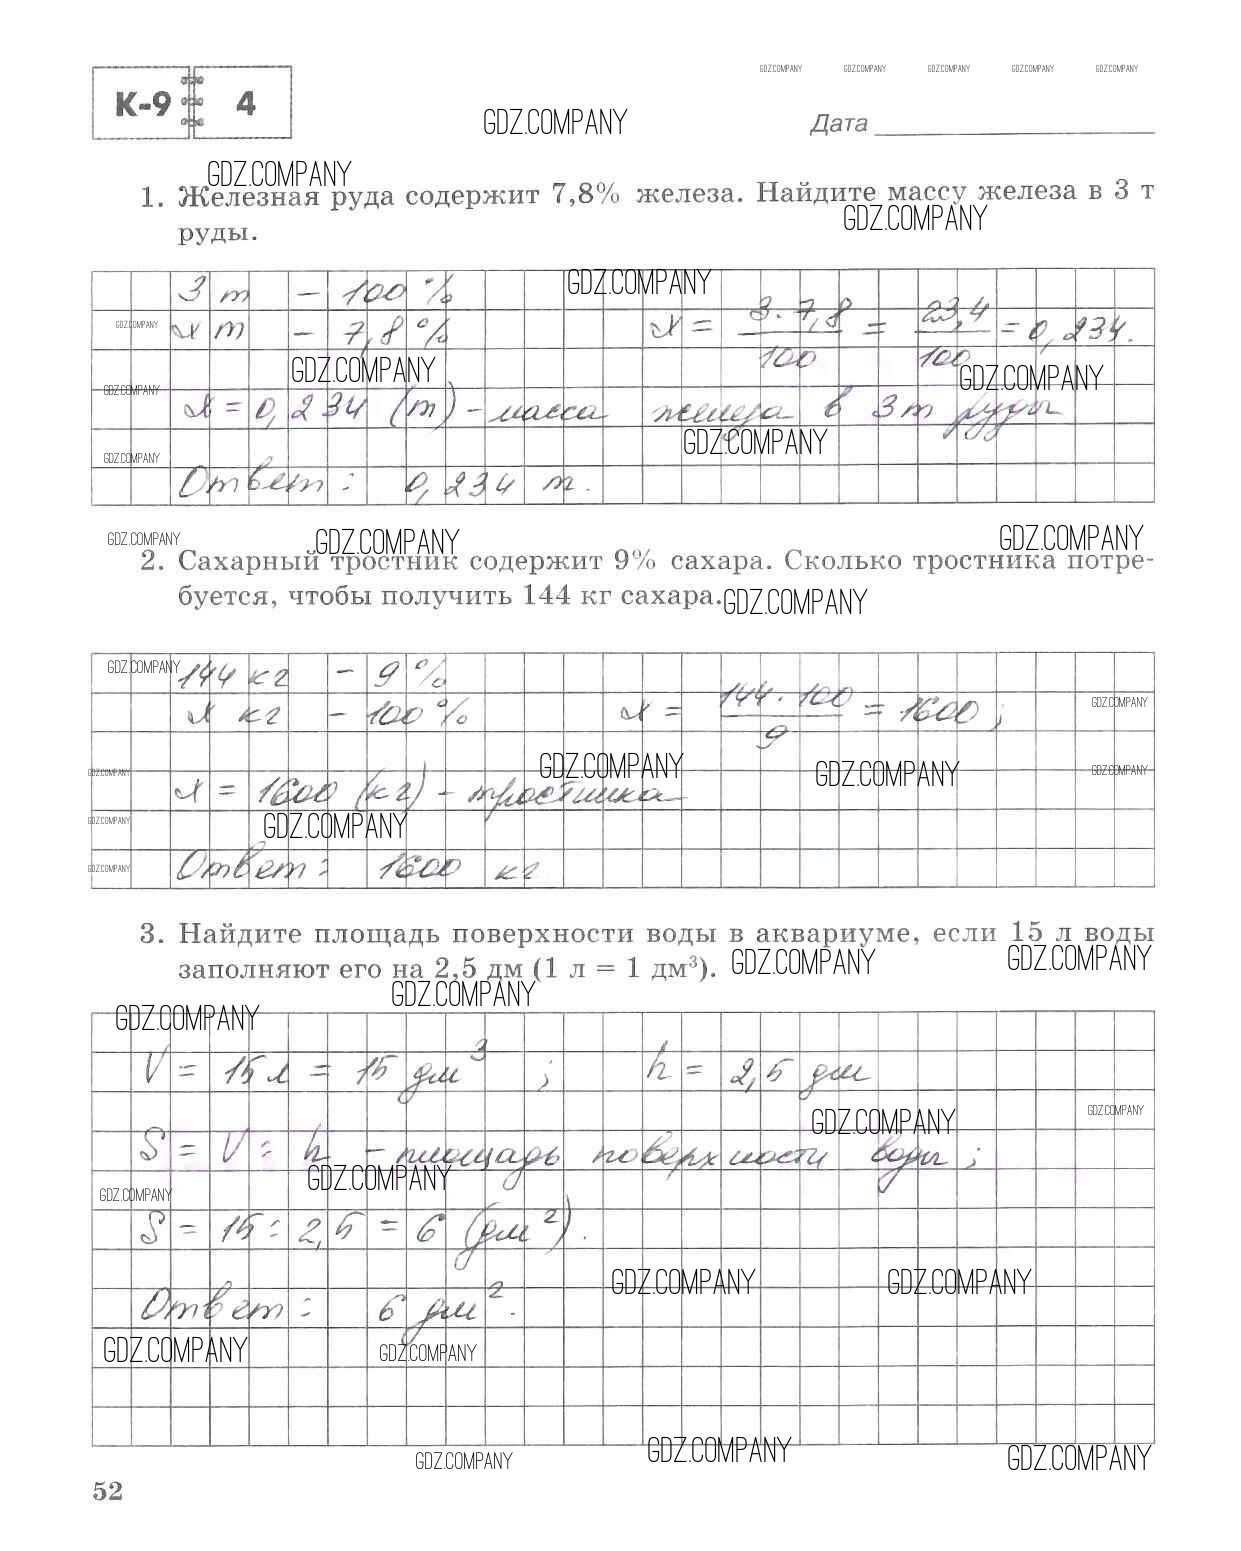 GDZ.COMPANY GDZ.COMPANY GDZ.COMPANY GDZ.COMPANY GDZ.COMPANY
К-9 4
GDZ.COMPANY
Дата
GDZ.COMPANY
1. Железная руда содержит 7,8% железа. Найдите массу железа в 3 т
GDZ.COMPANY
руды.
3 т – 100 %
GDZ.COMPANY
GDZ.COMPANY
х т – 7,8 % х = 3 · 7,8 / 100 = 23,4 / 100 = 0,234.
GDZ.COMPANY GDZ.COMPANY
GDZ.COMPANY
х = 0,234 (т) – масса железа в 3 т руды
GDZ.COMPANY
GDZ.COMPANY
Ответ: 0,234 т.
GDZ.COMPANY GDZ.COMPANY GDZ.COMPANY
2. Сахарный тростник содержит 9% сахара. Сколько тростника потре-
буется, чтобы получить 144 кг сахара. GDZ.COMPANY
GDZ.COMPANY
144 кг – 9 %
GDZ.COMPANY
х кг – 100 % х = 144 · 100 / 9 = 1600 ;
GDZ.COMPANY GDZ.COMPANY GDZ.COMPANY GDZ.COMPANY
х = 1600 (кг) – тростника
GDZ.COMPANY GDZ.COMPANY
GDZ.COMPANY
Ответ: 1600 кг
3. Найдите площадь поверхности воды в аквариуме, если 15 л воды
GDZ.COMPANY GDZ.COMPANY
заполняют его на 2,5 дм (1 л = 1 дм³).
GDZ.COMPANY
GDZ.COMPANY
V = 15 л = 15 дм³ ; h = 2,5 дм
GDZ.COMPANY GDZ.COMPANY
S = V : h – площадь поверхности воды ;
GDZ.COMPANY
GDZ.COMPANY
S = 15 : 2,5 = 6 (дм²).
GDZ.COMPANY GDZ.COMPANY
Ответ: 6 дм².
GDZ.COMPANY GDZ.COMPANY
GDZ.COMPANY GDZ.COMPANY GDZ.COMPANY
52